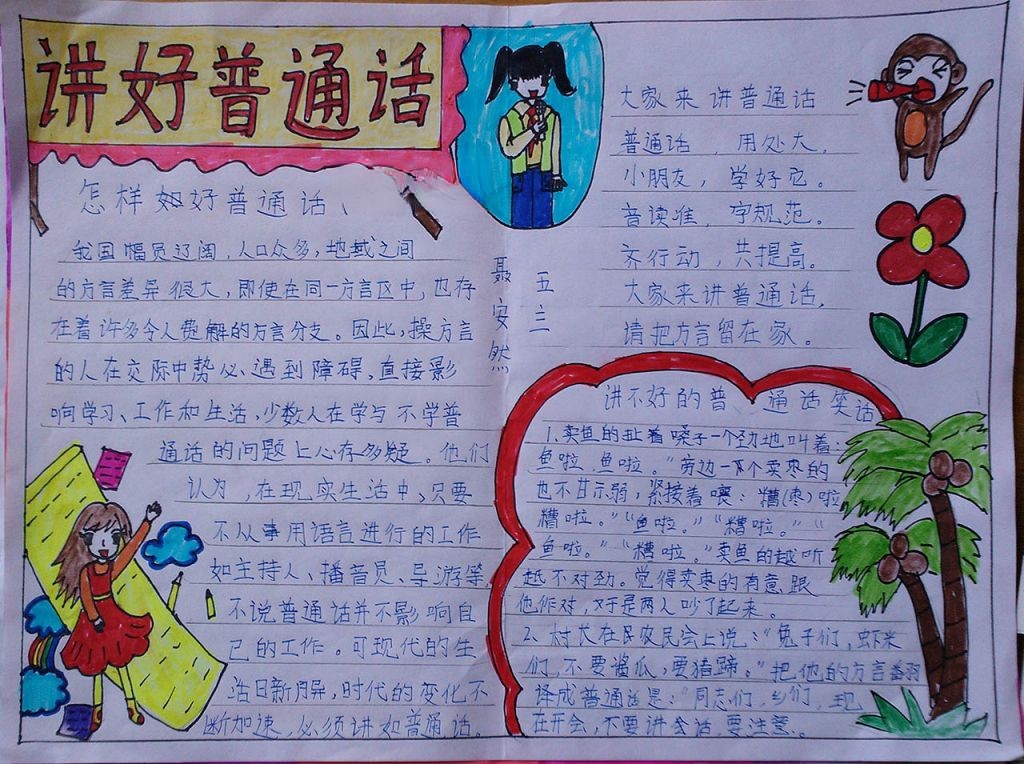 讲好普通话
怎样如好普通话、
我国幅员辽阔,人口众多,地域之间
的方言差异很大,即使在同一方言区中,也存
在着许多令人费解的方言分支。因此,操方言
的人在交际中势必、遇到障碍,直接影
响学习、工作和生活,少数人在学与不学普
通话的问题上心存多疑。他们
认为,在现实生活中,只要
不从事用语言进行的工作
如主持人、播音员、导游等,
不说普通话并不影响自
己的工作。可现代的生
活日新月异,时代的变化不
断加速,必须讲如普通话。
五三
聂安然
大家来讲普通话
普通话,用处大,
小朋友,学好它。
音读准,字规范。
齐行动,共提高。
大家来讲普通话,
请把方言留在家。
讲不好的普通话笑话
1、卖鱼的扯着嗓子一个劲地叫着:
鱼啦,鱼啦。"旁边一下个卖枣的
也不甘示弱,紧接着喂:糟(枣)啦
糟啦。"“鱼啦。”“糟啦。”“
鱼啦。”“糟啦。”卖鱼的越听
越不对劲。觉得卖枣的有意跟
他作对,于是两人吵了起来。
2、村长在居农民会上说:“兔子们,虾米
们,不要酱瓜,要猪蹄。”把他的方言翻
译成普通话是:“同志们,乡们,现
在开会,不要讲会话,要注意。